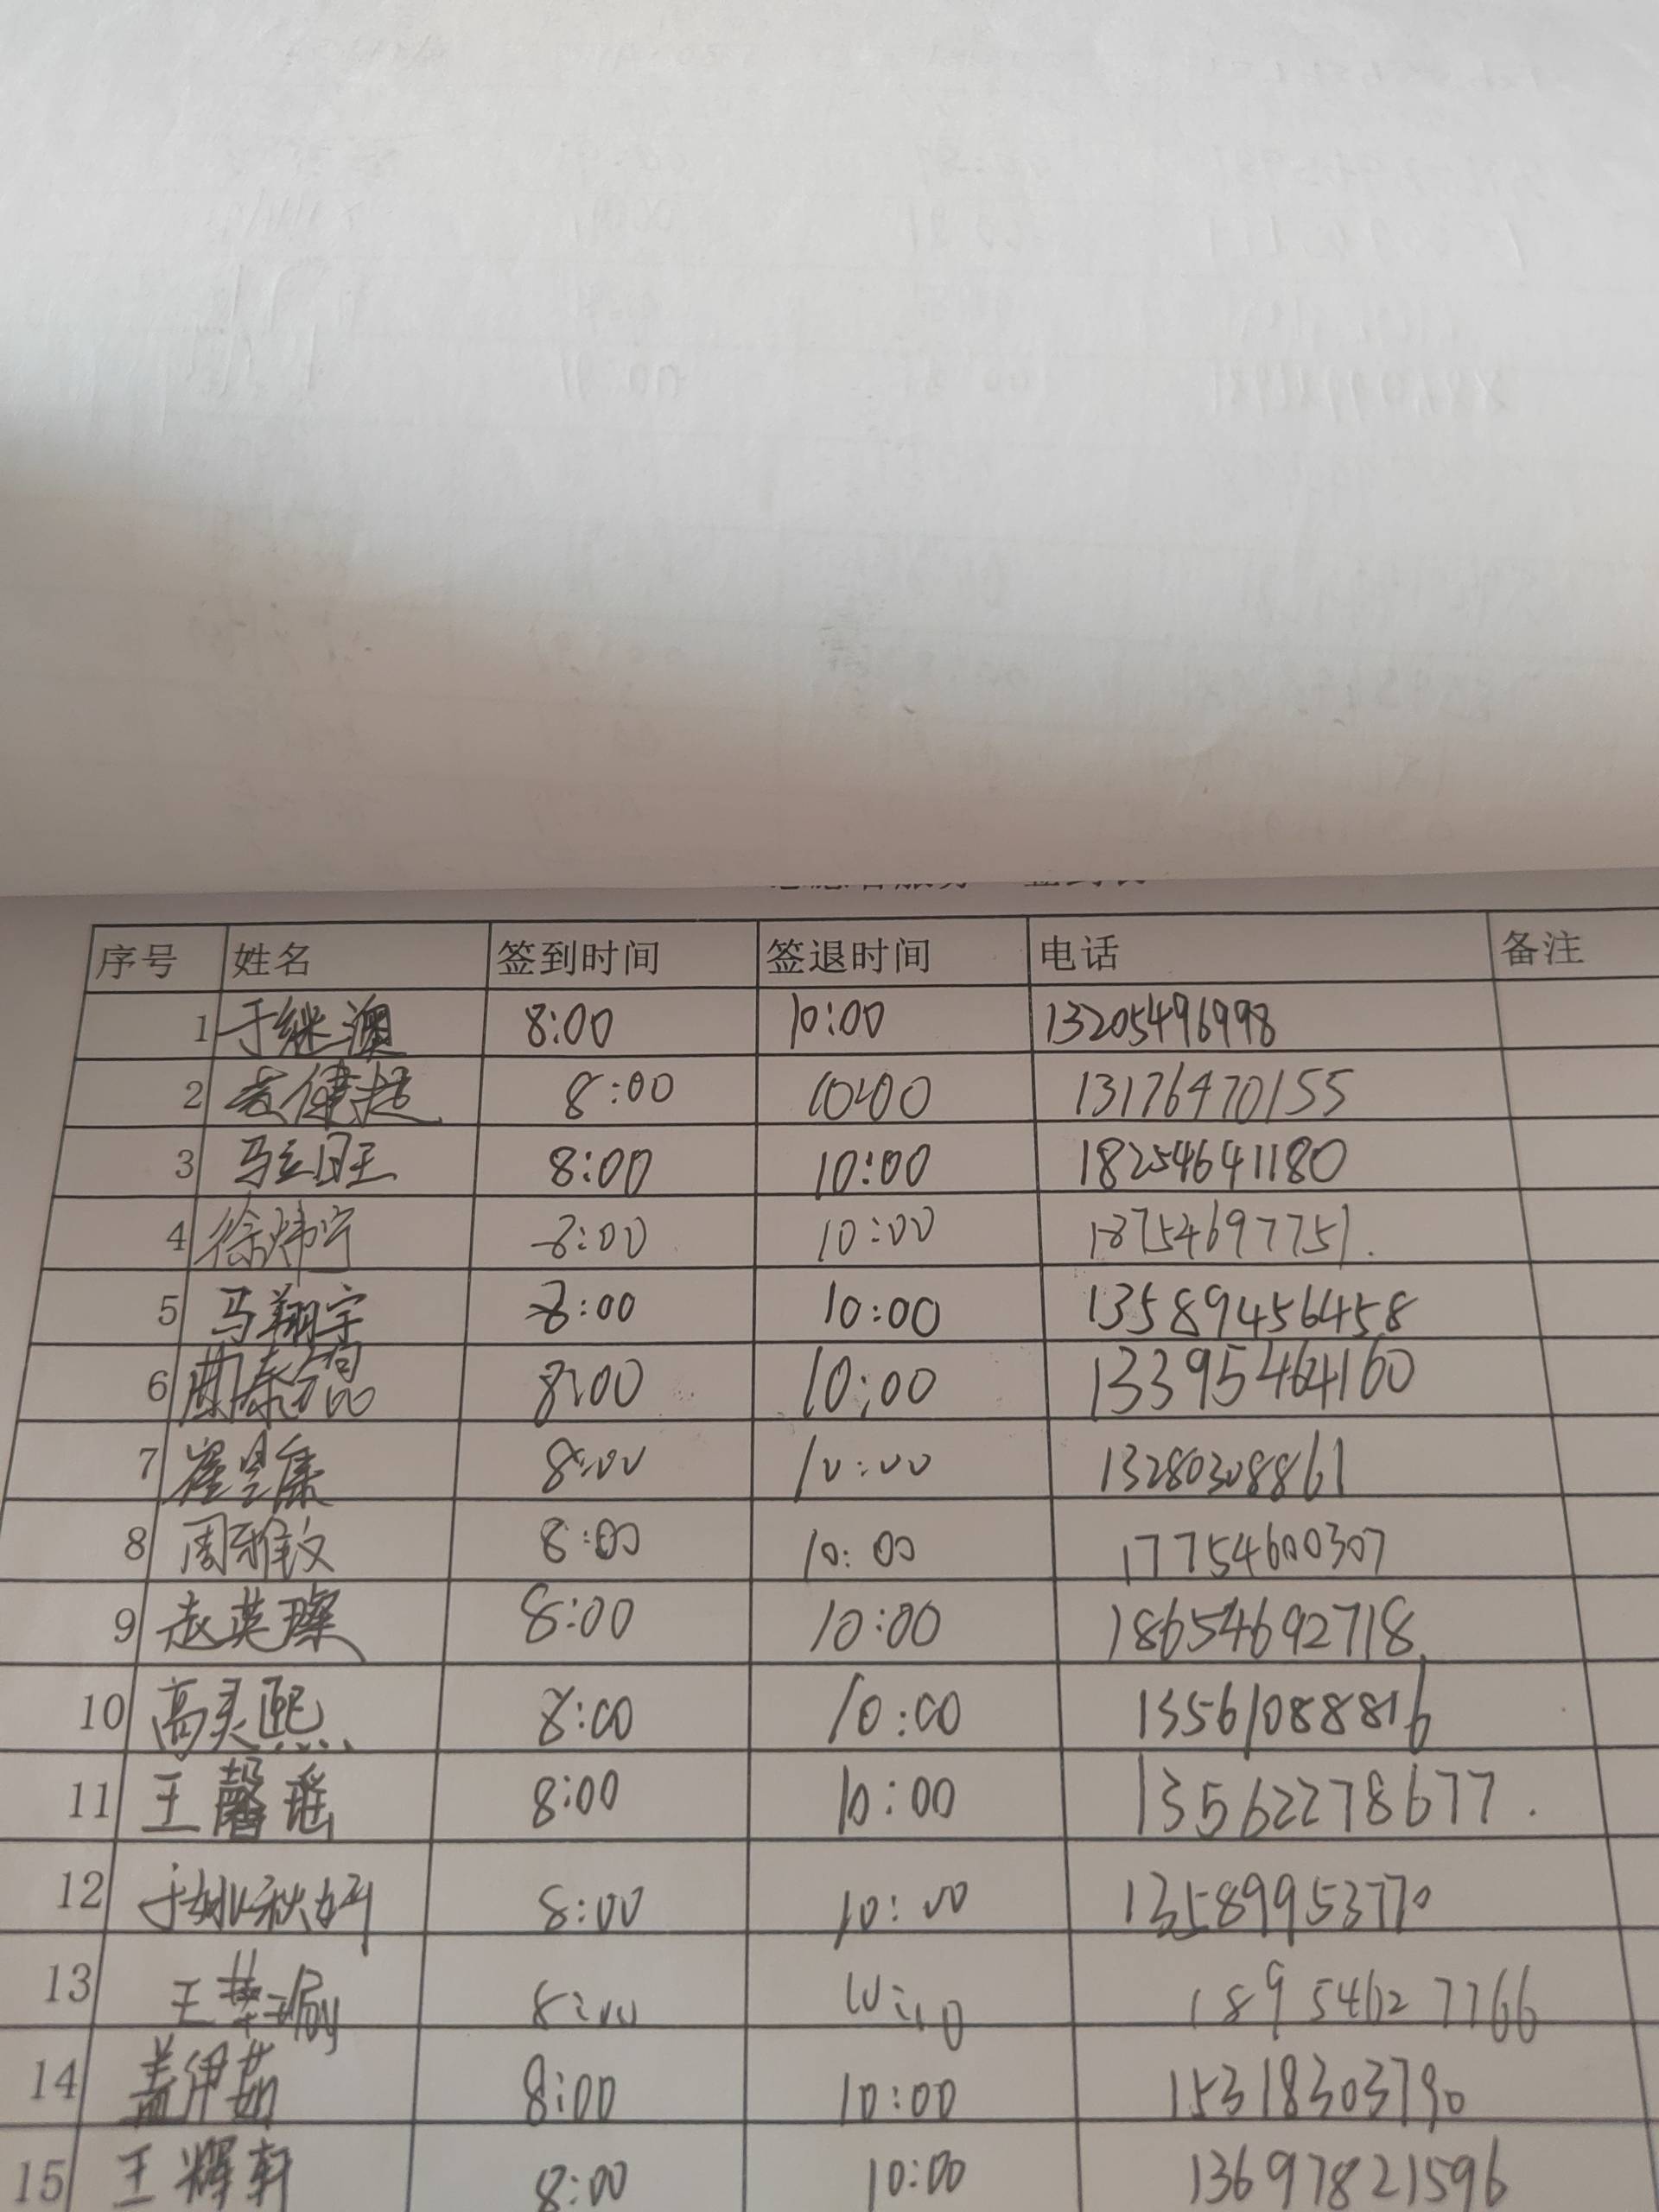 序号 姓名 签到时间 签退时间 电话 备注
1 于继澳 8:00 10:00 13205496998
2 袁健超 8:00 10:00 13176470155
3 马立旺 8:00 10:00 18254641180
4 徐炜宁 8:00 10:00 18754697751.
5 马翔宇 8:00 10:00 13589456458
6 8:00 10:00 13395464160
7 崔昱康 8:00 10:00 13280308861
8 周雅文 8:00 10:00 17754600307
9 赵英璨 8:00 10:00 18654692718
10 高灵熙 8:00 10:00 13561088816
11 王馨瑶 8:00 10:00 13562278677.
12 于姚秋妍 8:00 10:00 13589953770
13 王 8:00 10:00 18954627766
14 盖伊茹 8:00 10:00 15318303790
15 王辉轩 8:00 10:00 13697821596